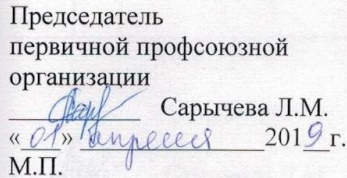 Председатель
первичной профсоюзной
организации
Сарычева Л.М.
«01» апреля 2019 г.
М.П.